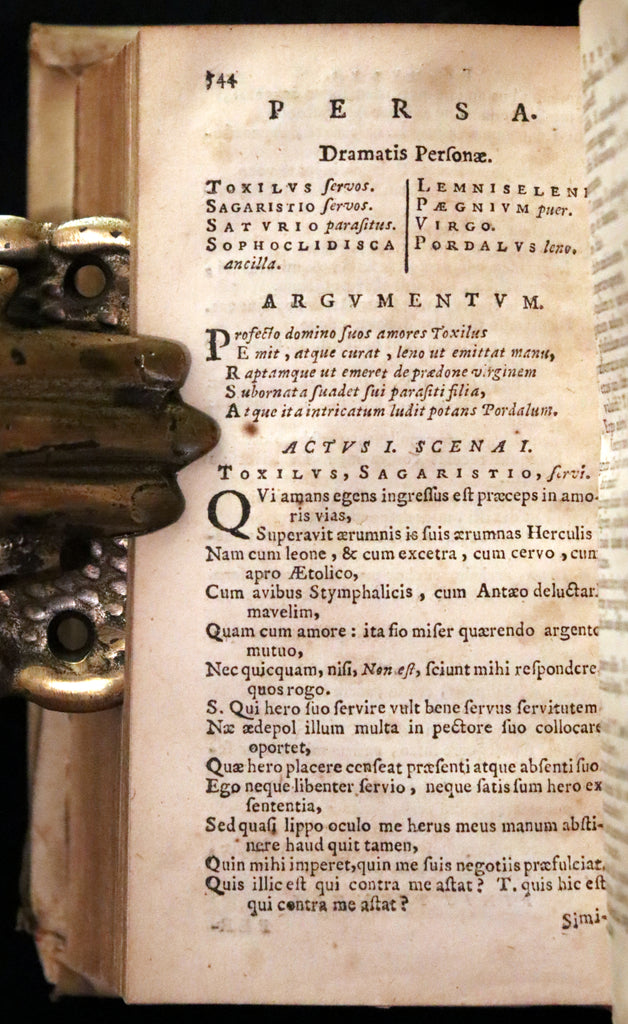 544
PERSA.
Dramatis Personæ.
TOXILVS ſervos.
SAGARISTIO ſervos.
SATVRIO paraſitus.
SOPHOCLIDISCA
ancilla.
LEMNISELENI
PÆGNIVM puer.
VIRGO.
PORDALVS leno.
ARGVMENTVM.
Profecto domino ſuos amores Toxilus
Emit, atque curat, leno ut emittat manu,
Raptamque ut emeret de prædone virginem
Subornata ſuadet ſui paraſiti filia,
Atque ita intricatum ludit potans Pordalum.
ACTVS I. SCENA I.
TOXILVS, SAGARISTIO, ſervi.
QVi amans egens ingreſſus eſt præceps in amo-
ris vias,
Superavit ærumnis is ſuis ærumnas Herculis
Nam cum leone, & cum excetra, cum cervo, cum
apro Ætolico,
Cum avibus Stymphalicis, cum Antæo deluctari
mavelim,
Quam cum amore: ita fio miſer quærendo argento
mutuo,
Nec quicquam, niſi, Non eſt, ſciunt mihi reſpondere
quos rogo.
S. Qui hero ſuo ſervire vult bene ſervus ſervitutem
Næ ædepol illum multa in pectore ſuo collocare
oportet,
Quæ hero placere cenſeat præſenti atque abſenti ſuo
Ego neque libenter ſervio, neque ſatis ſum hero ex
ſententia,
Sed quaſi lippo oculo me herus meus manum abſti-
nere haud quit tamen,
Quin mihi imperet, quin me ſuis negotiis præfulciat.
Quis illic eſt qui contra me aſtat? T. quis hic eſt
qui contra me aſtat?
Simi-